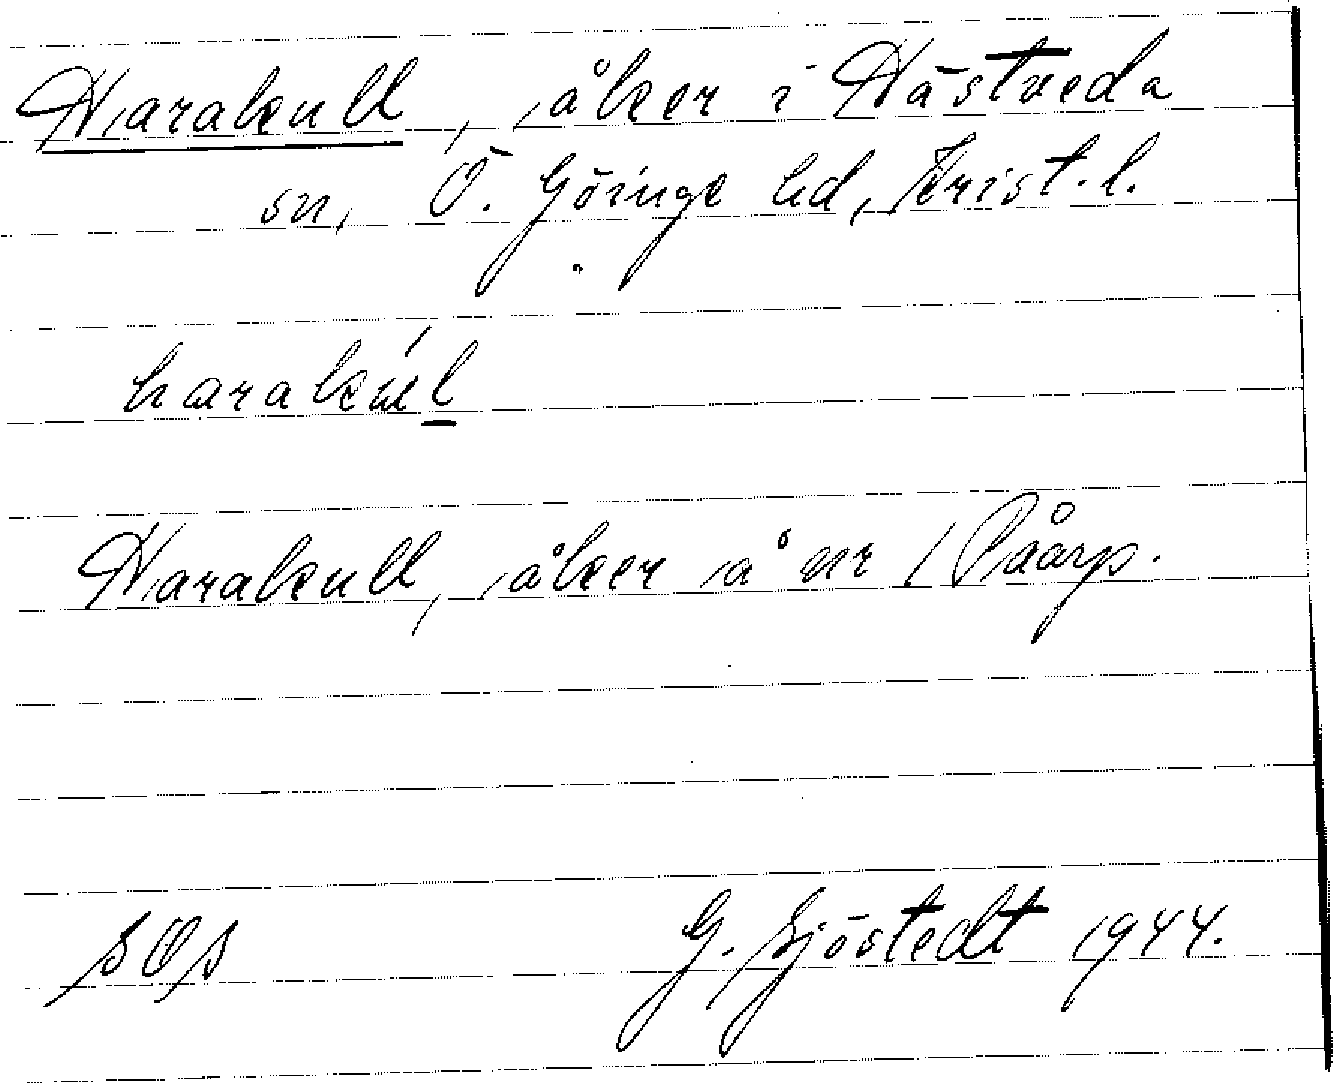 Harakull, åker i Hästveda
sn, Ö. Göinge hd, Krist. l.
harakúl
Harakull, åker å nr 1 Påarp.
SOS G. Sjöstedt 1944.